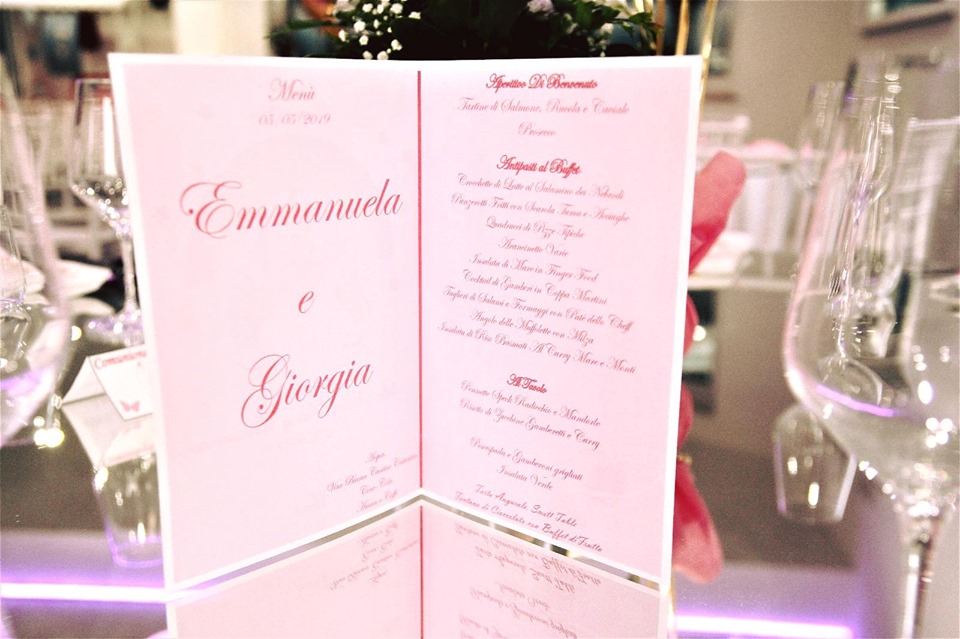 Menù
05/05/2019
Emmanuela
e
Giorgia
Acqua
Vino Bianco
Coca Cola
Amaro e Caffè
Aperitivo Di Benvenuto
Tartine di Salmone, Rucola e Caviale
Prosecco
Antipasti al Buffet
Crocchette di Latte al Salamino dei Nebrodi
Panzerotti Fritti con Scarola Tuma e Acciughe
Quadrucci di Pizze Tipiche
Arancinette Varie
Insalata di Mare in Finger Food
Cocktail di Gamberi in Coppa Martini
Taglieri di Salumi e Formaggi con Patè dello Cheff
Angolo delle Muffolette con Milza
Insalata di Riso Basmati Al Curry Mare e Monti
Al Tavolo
Pennette Speck Radicchio e Mandorle
Risotto di Zucchine Gamberetti e Curry
Pescespada e Gamberoni grigliati
Insalata Verde
Torta Augurale Swett Table
Fontana di Cioccolato con Buffet di Frutta